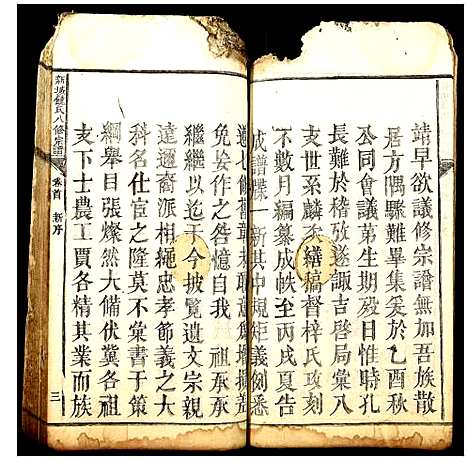 靖早欲議修宗譜無如吾族散
居方隅驟難畢集爰於乙酉秋
仝同會議第生期歿日惟時孔
長難於稽攷遂諏吉啓局彙八
支世系麟次繕稿督梓氏攻刻
不數月編纂成帙至戌夏告
成譜牒一新其中規矩義例悉
遵
免妄作之咎憶自我 祖承承
繼繼以迄于今披覽遺文宗親
遠邇裔派相繩忠孝節義之大
科名仕宦之隆莫不彙書于策
綱舉目張燦然大備伏冀各祖
支下士農工賈各精其業而族
新城鍾氏八修宗譜
卷首 新序
三